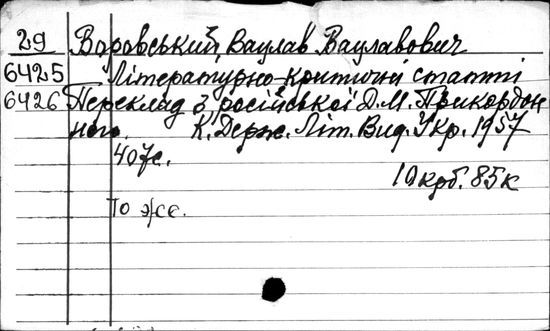 29 Воровський, Вацлав Вацлавович
6425 Літературно-критичні статті
6426 Переклад з російської Д.М. Прикордон
ного. К. Держ. Літ. Вид. Укр. 1957
407с.
10 крб. 85к
То же.